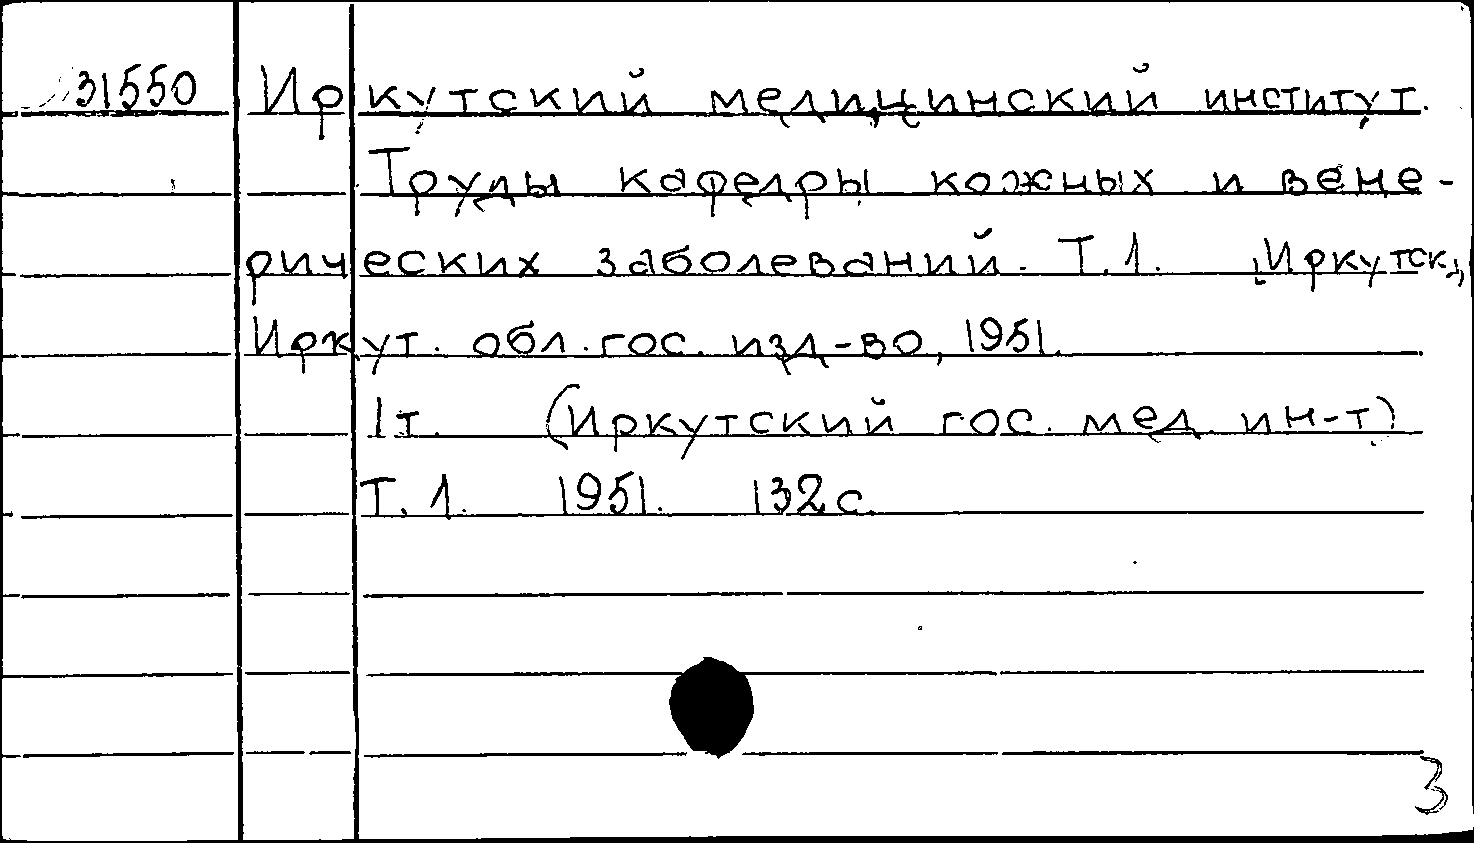 31550 Иркутский медицинский институт.
Труды кафедры кожных и вене-
рических заболеваний. Т.1. [Иркутск],
Иркут. обл. гос. изд-во, 1951.
1т. (Иркутский гос. мед. ин-т)
Т. 1. 1951. 132с.
3